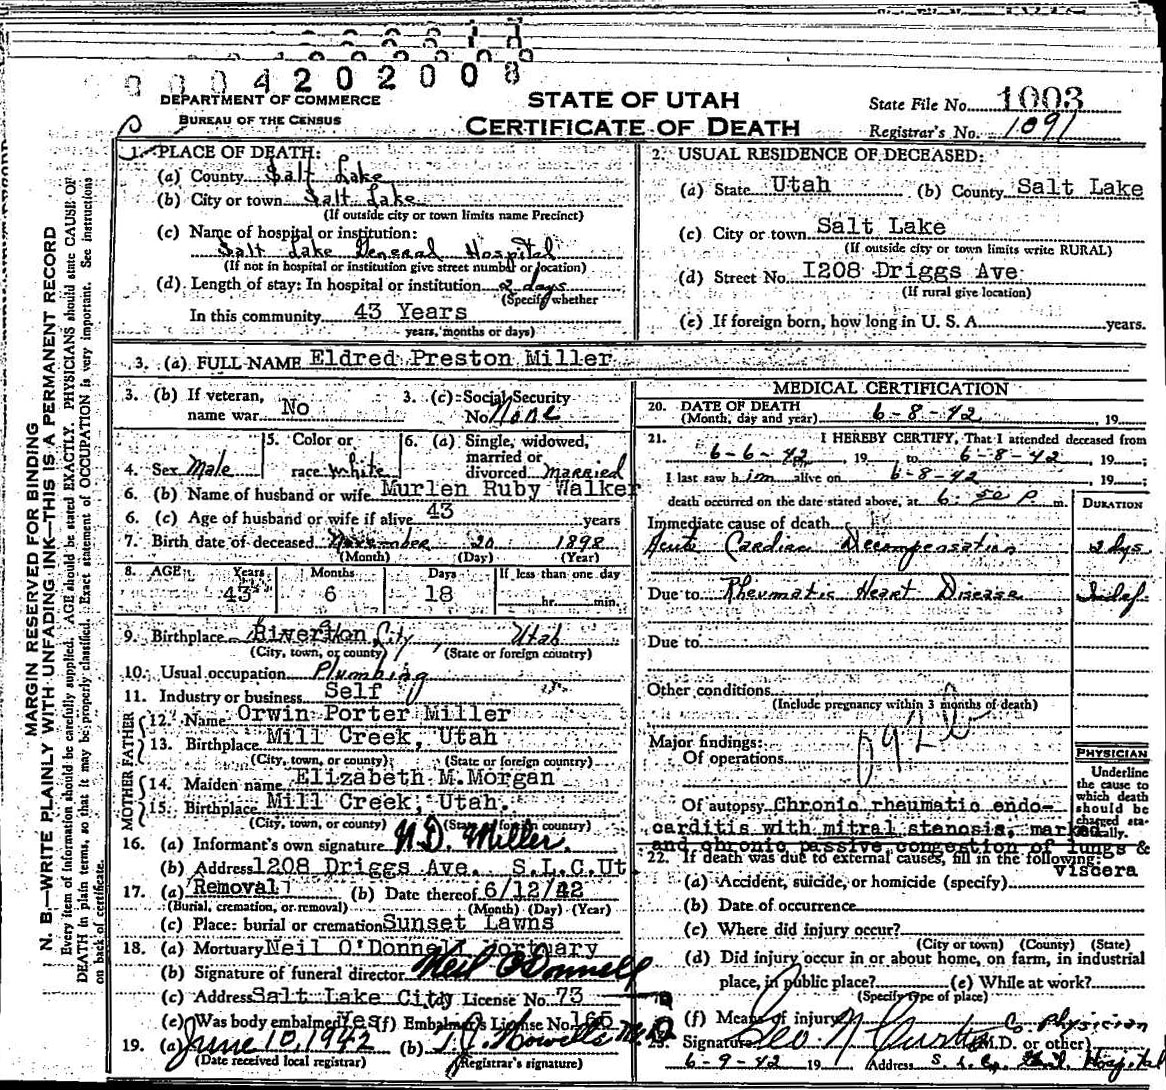 0004202008
DEPARTMENT OF COMMERCE
BUREAU OF THE CENSUS
STATE OF UTAH
CERTIFICATE OF DEATH
State File No. 1003
Registrar's No. 1091
MARGIN RESERVED FOR BINDING
N. B.—WRITE PLAINLY WITH UNFADING INK—THIS IS A PERMANENT RECORD
Every item of information should be carefully supplied. AGE should be stated EXACTLY. PHYSICIANS should state CAUSE OF
DEATH in plain terms, so that it may be properly classified. Exact statement of OCCUPATION is very important. See instructions
on back of certificate.
1. PLACE OF DEATH:
(a) County Salt Lake
(b) City or town Salt Lake
(If outside city or town limits name Precinct)
(c) Name of hospital or institution:
Salt Lake General Hospital
(If not in hospital or institution give street number or location)
(d) Length of stay: In hospital or institution 2 days
(Specify whether
In this community 43 Years
years, months or days)
2. USUAL RESIDENCE OF DECEASED:
(a) State Utah (b) County Salt Lake
(c) City or town Salt Lake
(If outside city or town limits write RURAL)
(d) Street No. 1208 Driggs Ave
(If rural give location)
(e) If foreign born, how long in U. S. A. years.
3. (a) FULL NAME Eldred Preston Miller
3. (b) If veteran, name war No
3. (c) Social Security No. None
4. Sex Male
5. Color or race White
6. (a) Single, widowed, married or divorced married
6. (b) Name of husband or wife Murlen Ruby Walker
6. (c) Age of husband or wife if alive 43 years
7. Birth date of deceased November 20 1898
(Month) (Day) (Year)
8. AGE Years Months Days If less than one day
43 6 18 hr. min.
9. Birthplace Riverton City Utah
(City, town, or county) (State or foreign country)
10. Usual occupation Plumbing
11. Industry or business Self
FATHER
12. Name Orwin Porter Miller
13. Birthplace Mill Creek, Utah
(City, town, or county) (State or foreign country)
MOTHER
14. Maiden name Elizabeth M. Morgan
15. Birthplace Mill Creek, Utah.
(City, town, or county) (State or foreign country)
16. (a) Informant's own signature N.D. Miller.
(b) Address 1208 Driggs Ave. S.L.C.Ut
17. (a) Removal (b) Date thereof 6/12/42
(Burial, cremation, or removal) (Month) (Day) (Year)
(c) Place: burial or cremation Sunset Lawns
18. (a) Mortuary Neil O'Donnell Mortuary
(b) Signature of funeral director Neil O'Donnell
(c) Address Salt Lake City (d) License No. 73
(e) Was body embalmed Yes (f) Embalmer's License No. 165
19. (a) June 10, 1942 (b) T.J. Howells M.D.
(Date received local registrar) (Registrar's signature)
MEDICAL CERTIFICATION
20. DATE OF DEATH 6-8-42, 19
(Month, day and year)
21. I HEREBY CERTIFY, That I attended deceased from
6-6-42, 19 to 6-8-42, 19 ;
I last saw him alive on 6-8-42, 19 ;
death occurred on the date stated above, at 6:50 P. m.
DURATION
Immediate cause of death
Acute Cardiac Decompensation 2 dys
Due to Rheumatic Heart Disease Indef
Due to
Other conditions
(Include pregnancy within 3 months of death)
Major findings:
Of operations
Of autopsy Chronic rheumatic endo-
carditis with mitral stenosis, marked
and chronic passive congestion of lungs &
viscera
PHYSICIAN
Underline
the cause to
which death
should be
charged sta-
tistically.
22. If death was due to external causes, fill in the following:
(a) Accident, suicide, or homicide (specify)
(b) Date of occurrence
(c) Where did injury occur?
(City or town) (County) (State)
(d) Did injury occur in or about home, on farm, in industrial
place, in public place? (e) While at work?
(Specify type of place)
(f) Means of injury
Co. Physician
Signature Geo N Curtis (M.D. or other)
6-9-42 19 Address S.L.C. Gen'l Hospital